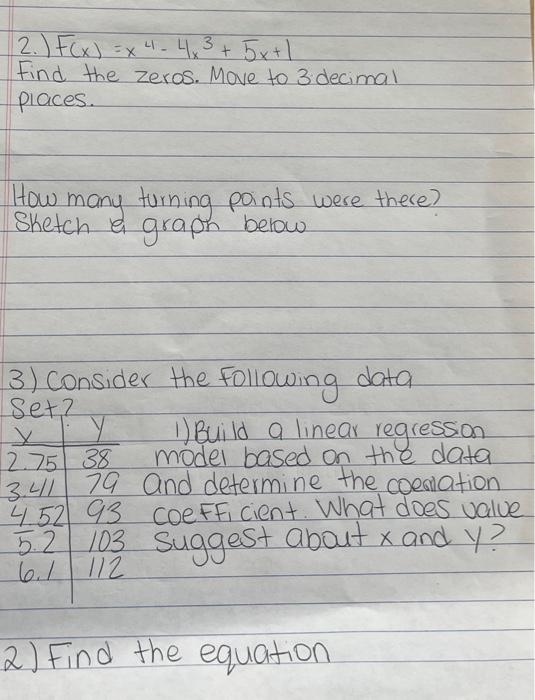 2.) F(x) = x⁴ - 4x³ + 5x + 1
Find the zeros. Move to 3 decimal
places.
How many turning points were there?
Sketch a graph below
3) Consider the following data
Set?
x y 1) Build a linear regression
2.75 38 model based on the data
3.41 79 and determine the coerlation
4.52 93 coefficient. What does value
5.2 103 suggest about x and y?
6.1 112
2) Find the equation